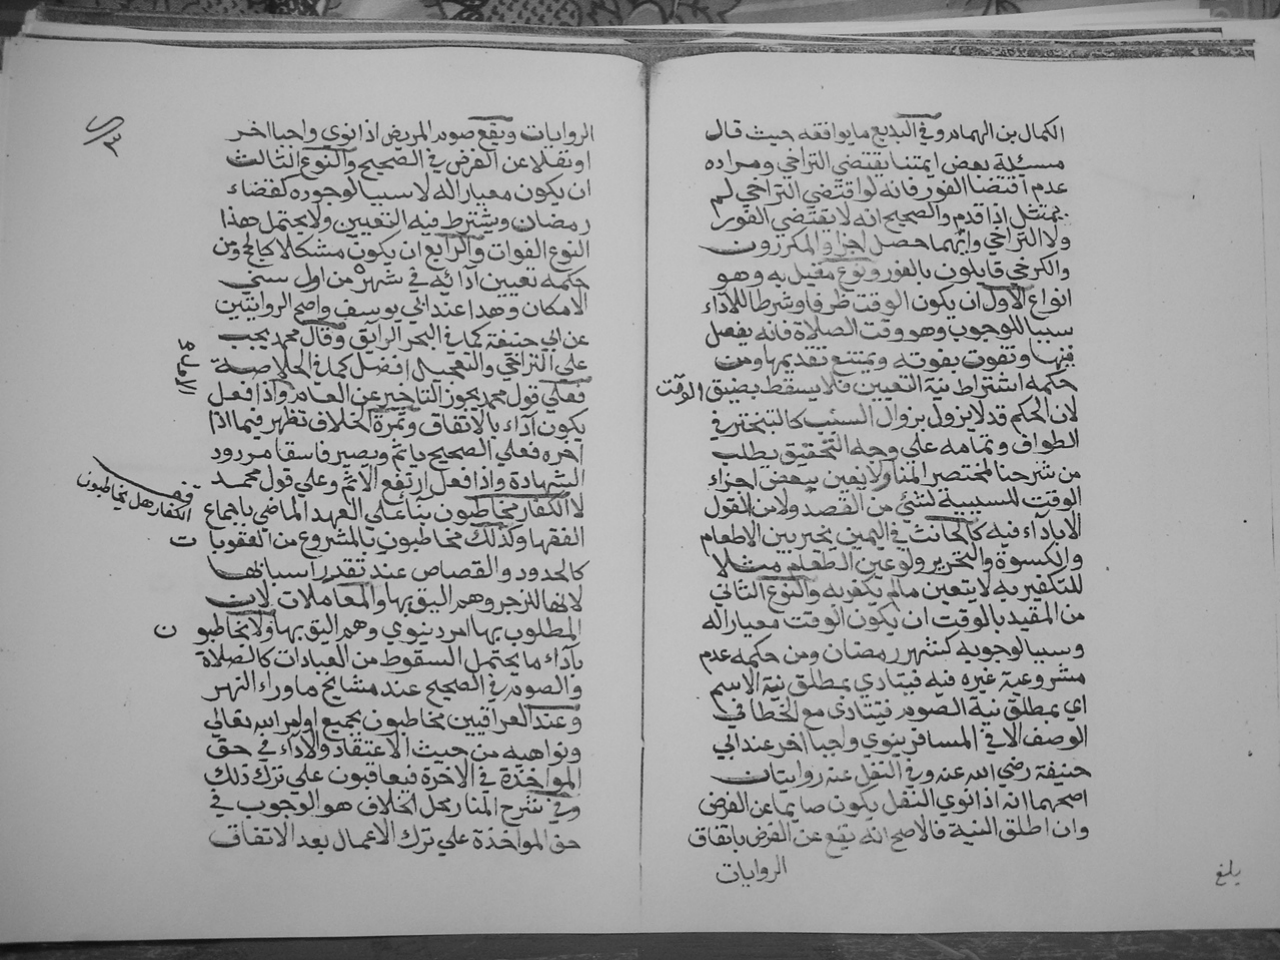 الكمال بن الهمام وفي البديع ما يوافقه حيث قال
مسئلة بعض ايمتنا يقتضي التراخي ومراده
عدم اقتضا الفور فانه لو اقتضي التراخي لم
يمتثل اذا قدم والصحيح انه لا يقتضي الفور
ولا التراخي وايهما حصل اجزا والمكررون
والكرخي قايلون بالفور ونوع مقيد به وهو
انواع الاول ان يكون الوقت ظرفا وشرطا للاداء
سببا للوجوب وهو وقت الصلاة فانه يفصل
فيها وتفوت بفوته ويمتنع تقديمها ومن
حكمه اشتراط نية التعيين فلا يسقط بضيق الوقت
لان الحكم قد لا يزول بزوال السبب كالتبختر في
الطواف وتمامه علي وجه التحقيق يطلب
من شرحنا لمختصر المنار ولا يعين ببعض اجزاء
الوقت للسببية لشئ من القصد ولا من القول
الا باداء فيه كالحانث في اليمين يخير بين الاطعام
والكسوة والتحرير ولو عين الطعام مثلا
للتكفير به لا يتعين مالم يكفر به والنوع الثاني
من المقيد بالوقت ان يكون الوقت معيارا له
وسببا لوجوبه كشهر رمضان ومن حكمه عدم
مشروعية غيره فيه فيتادي بمطلق نية الاسم
اي بمطلق نية الصوم فيتادي مع الخطا في
الوصف الا في المسافر ينوي واجبا اخر عند ابي
حنيفة رضي الله عنه وفي النفل عنه روايتان
اصحهما انه اذا نوي النفل يكون صايما عن الفرض
وان اطلق النية فالاصح انه يقع عن الفرض باتفاق
الروايات
بلغ
الروايات ويقع صوم المريض اذا نوي واجبا اخر
او نفلا عن الفرض في الصحيح والنوع الثالث
ان يكون معيارا له لا سببا لوجوده كقضاء
رمضان ويشترط فيه التعيين ولا يحتمل هذا
النوع الفوات والرابع ان يكون مشكلا كالحج ومن
حكمه تعيين ادائه في شهر من اول سني
الامكان وهذا عند ابي يوسف واصح الروايتين
عن ابي حنيفة كما في البحر الرايق وقال محمد يجب
علي التراخي والتعجيل افضل كما في الخلاصة
فعلي قول محمد يجوز التاخير عن العام واذا فعل
يكون آداء بالاتفاق وثمرة الخلاف تظهر فيما اذا
اخره فعلي الصحيح ياثم ويصير فاسقا مردود
الشهادة واذا فعل ارتفع الاثم وعلي قول محمد
لا الكفار مخاطبون بناء علي العهد الماضي باجماع
الفقها وكذلك مخاطبون بالمشروع من العقوبا ت
كالحدود والقصاص عند تقرر اسبابها
لانها للزجر وهم اليق بها والمعاملات لان
المطلوب بها امر دنيوي وهم اليق بها ولا يخاطبو ن
باداء ما يحتمل السقوط من العبادات كالصلاة
والصوم في الصحيح عند مشايخ ما وراء النهر
وعند العراقيين مخاطبون بجميع اوامر الله تعالي
ونواهيه من حيث الاعتقاد والاداء في حق
المواخذة في الاخرة فيعاقبون علي ترك ذلك
وفي شرح المنار محل الخلاف هو الوجوب في
حق المواخذة علي ترك الاعمال بعد الاتفاق
قف
الكفار هل يخاطبون